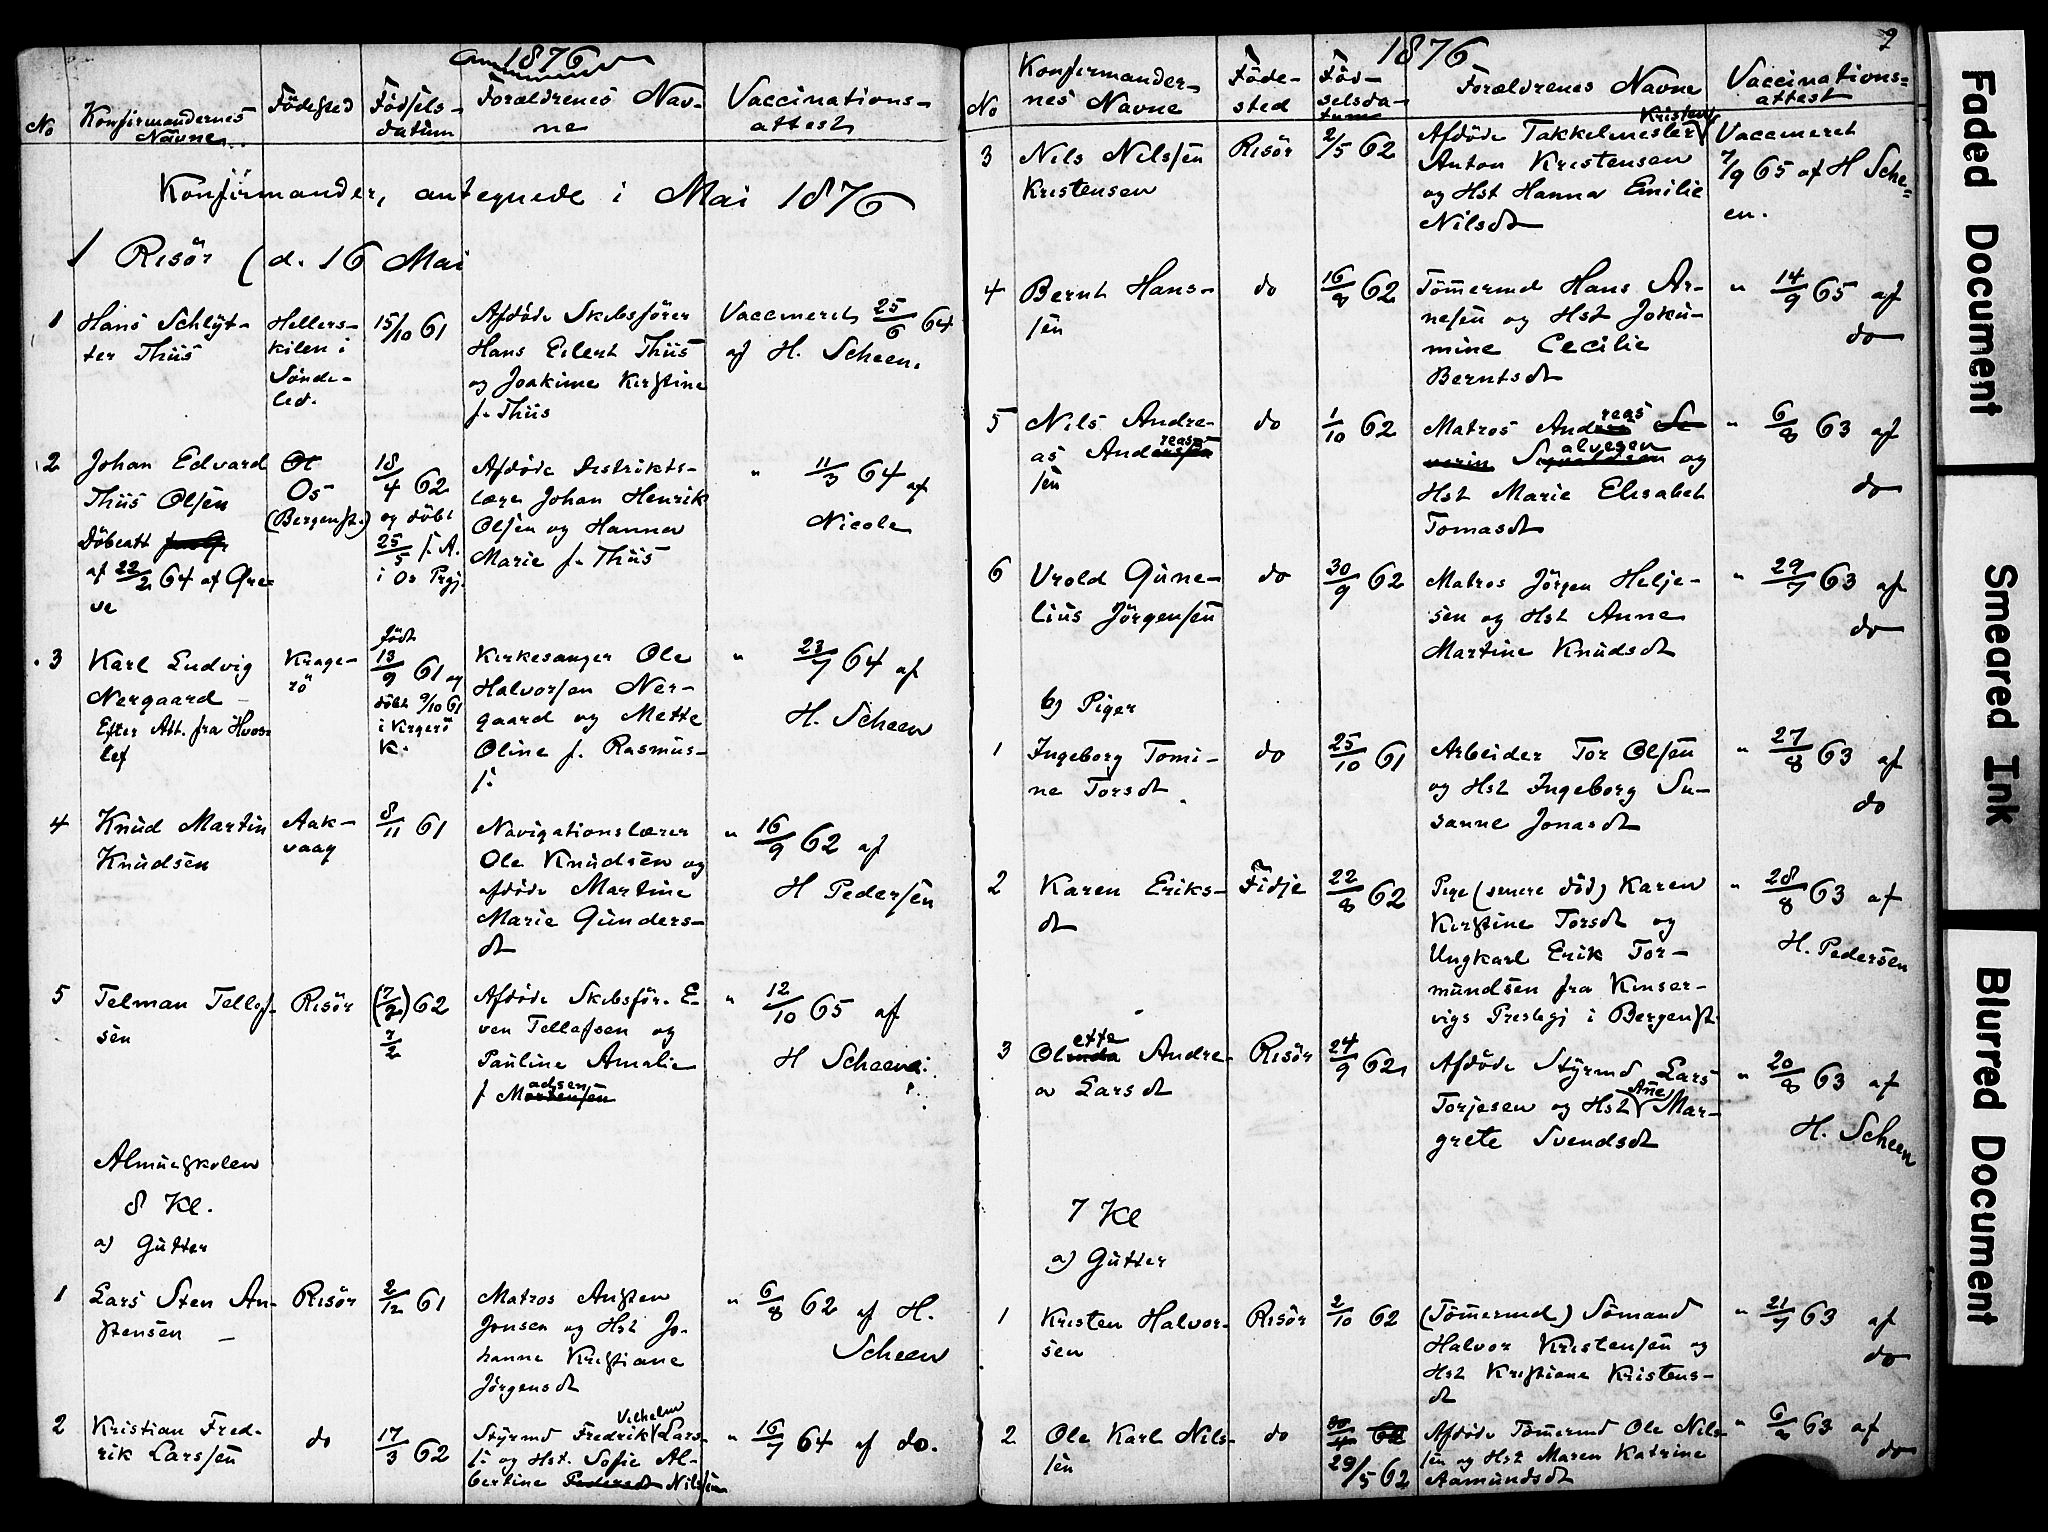 1876
No
Konfirmandernes
Navne
Födested
Födsels-
datum
Forældrenes Nav-
ne
Vaccinations-
attest
Konfirmander, antegnede i Mai 1876
1 Risör (d. 16 Mai
1
Hans Schlyt-
ter Thiis
Hellers-
kilen i
Sönde-
led.
15/10 61
Afdöde Skibsförer
Hans Eilert Thiis
og Joakime Kirstine
f. Thiis
Vaccineret 25/6 64
af H. Scheen.
2
Johan Edvard
Thiis Olsen
Döbeatt
af 22/2 64 af Gre-
ve
Os
(Bergenst.)
18/4 62
og döbt
25/5 s. A.
i Os Prgj.
Afdöde Distrikts-
læge Johan Henrik
Olsen og Hanna
Marie f. Thiis
" 11/3 64 af
Nicole
3
Karl Ludvig
Nergaard
Efter Att. fra Hvos-
lef
Krage-
rö
födt
13/9 61 og
döbt 9/10 61
i Kragerö
K.
Kirkesanger Ole
Halvorsen Ner-
gaard og Mette
Oline f. Rasmus-
s.
" 23/7 64 af
H. Scheen
4
Knud Martin
Knudsen
Aak-
vaag
8/11 61
Navigationslærer
Ole Knudsen og
afdöde Martine
Marie Gunders-
dt
" 16/9 62 af
H Pedersen
5
Telman Tellef-
sen
Risör
(7/2) 62
7/2
Afdöde Skibsför. E-
ven Tellefsen og
Pauline Amalie
f Madsen
" 12/10 65 af
H Scheen
Almueskolen
8 Kl.
a) Gutter
1
Lars Sten An-
stensen
Risör
2/12 61
Matros Ansten
Jonsen og Hst Jo-
hanne Kristiane
Jörgensdt
" 6/8 62 af H.
Scheen
2
Kristian Fred-
rik Larssen
do
17/3 62
Styrmd Fredrik Vilhelm Lars-
s. og Hst. Sofie Al-
bertine Pedersdt Nilssen
" 16/7 64 af do.
1876
9
No
Konfirmander-
nes Navne
Föde-
sted
Föd-
selsda-
tum
Forældrenes Navne
Vaccinations-
attest
3
Nils Nilssen
Kristensen
Risör
2/5 62
Afdöde Takkelmester Kristen
Anton Kristensen
og Hst Hanna Emilie
Nilsdt
Vaccineret
7/9 65 af H Sche-
en.
4
Bernt Hans-
sen
do
16/8 62
Tömermd Hans Ar-
nesen og Hst Joku-
mine Cecilie
Berntsdt
" 14/9 65 af
do
5
Nils Andre-
as Andreas-
sen
do
1/10 62
Matros Andreas Se-
verin Salvesen og
Hst Marie Elisabet
Tomasdt
" 6/8 63 af
do
6
Vrold Gune-
lius Jörgensen
do
30/9 62
Matros Jörgen Helje-
sen og Hst Anne
Martine Knudsdt
" 29/7 63 af
do
b) Piger
1
Ingeborg Tomi-
ne Torsdt
do
25/10 61
Arbeider Tor Olsen
og Hst Ingeborg Su-
sanne Jonasdt
" 27/8 63 af
do
2
Karen Eriks-
dt
Fidje
22/8 62
Pige (senere död) Karen
Kirstine Torsdt og
Ungkarl Erik Tor-
mundsen fra Kinser-
vigs Prestegj i Bergenst.
" 28/8 63 af
H. Pedersen
3
Olette Andre-
a Larsdt
Risör
24/9 62
Afdöde Styrmd Lars
Torjesen og Hst Ane Mar-
grete Svendsdt
" 20/8 63 af
H. Scheen
7 Kl
a) Gutter
1
Kristen Halvor-
sen
Risör
2/10 62
(Tömermd) Sömand
Halvor Kristensen og
Hst Kristiane Kristens-
dt
" 21/7 63 af
do
2
Ole Karl Nils-
sen
do
29/5 62
Afdöde Tömermd Ole Nils-
sen og Hst Maren Katrine
Aamundsdt
" 63 af
do
Faded Document
Smeared Ink
Blurred Document